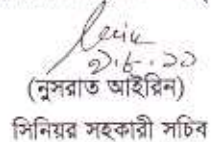 ২.৮.১১
(নুসরাত আইরিন)
সিনিয়র সহকারী সচিব